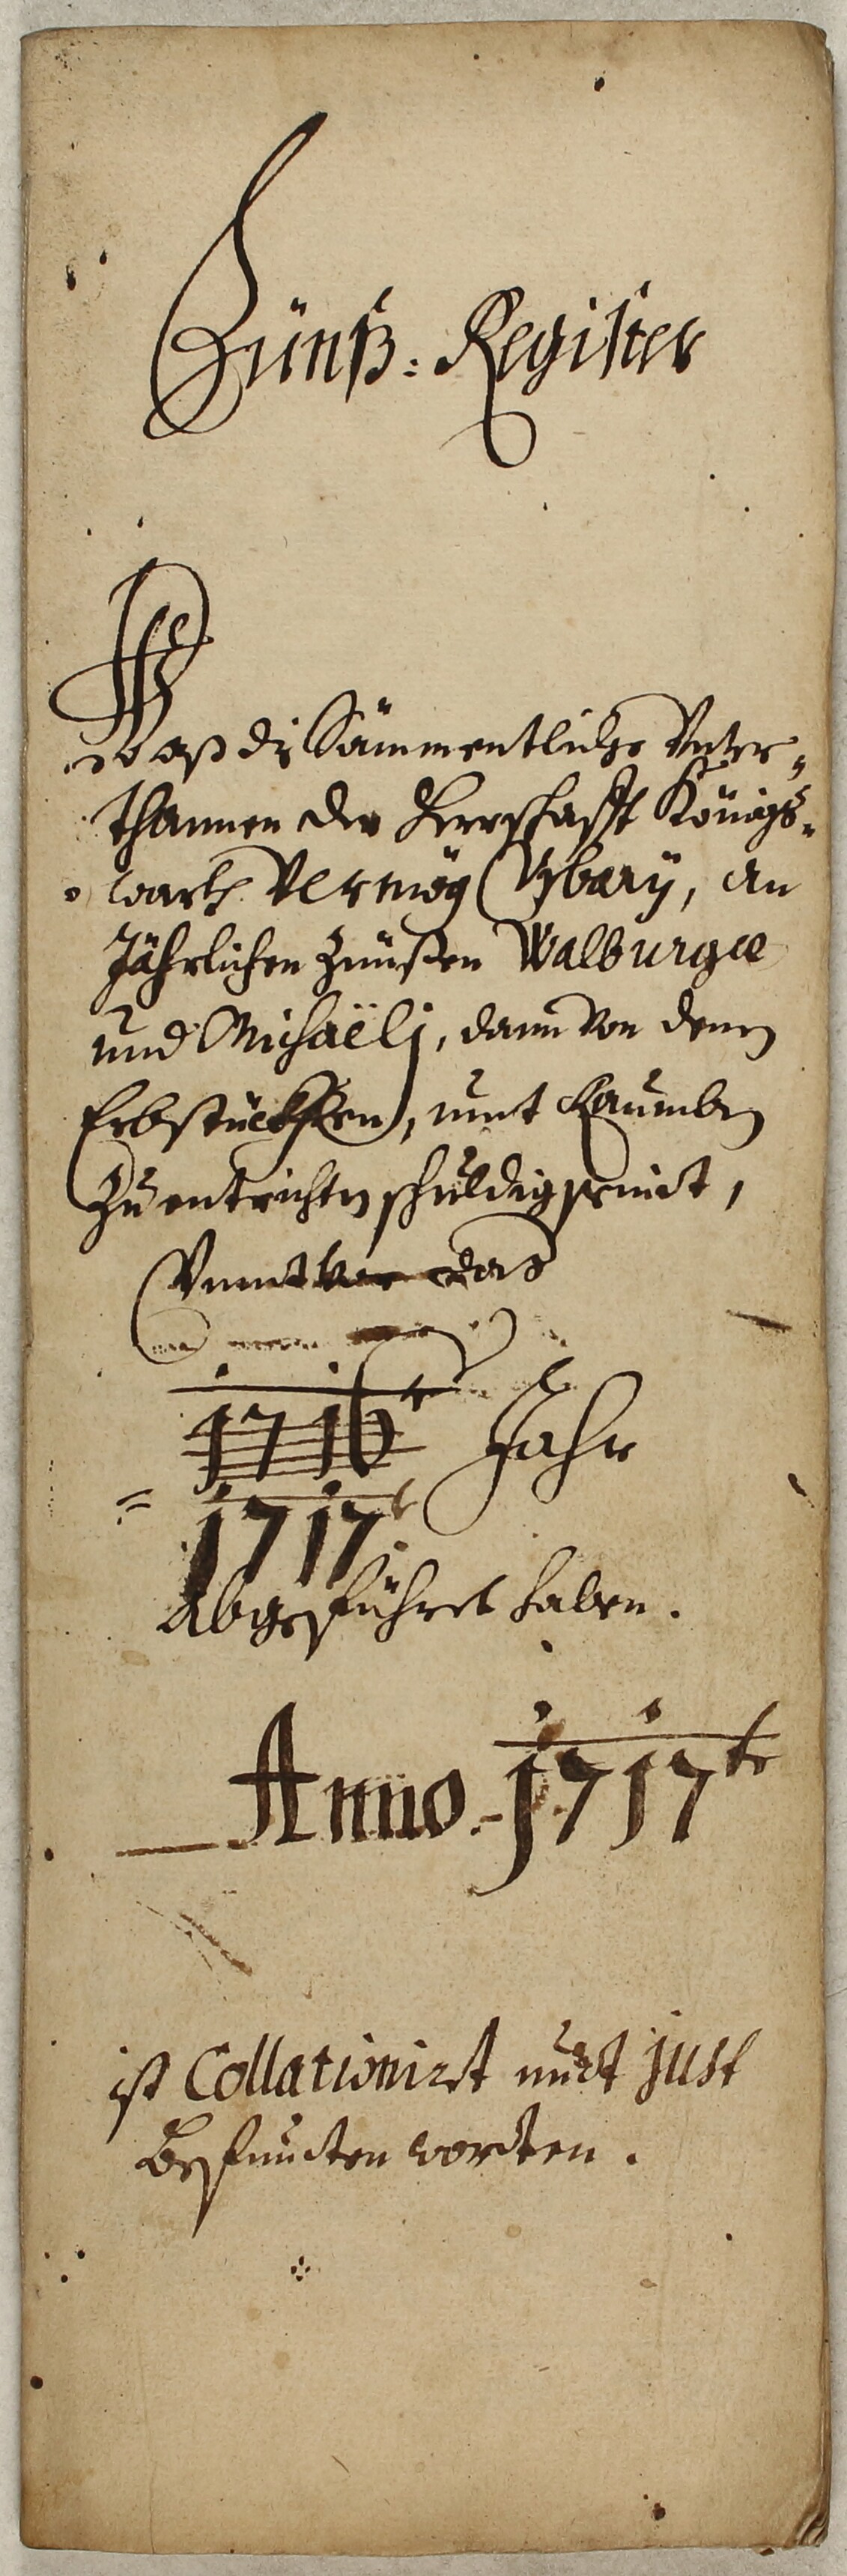 Zünß: Register
Waß die Sämmentliche Unter-
thannen der Herrschafft Königs-
warth Vermög Urbary, an
Jährlichen Zünßen Walburgae
und Michaëlj, dann von denen
Erbstuckhen, unnt Raumben
Zu entrichten schuldig seindt,
Unnt das
1716te Jahr
1717t
Abgeführet haben.
Anno 1717te
ist Collationirt undt just
Befundten wordten.